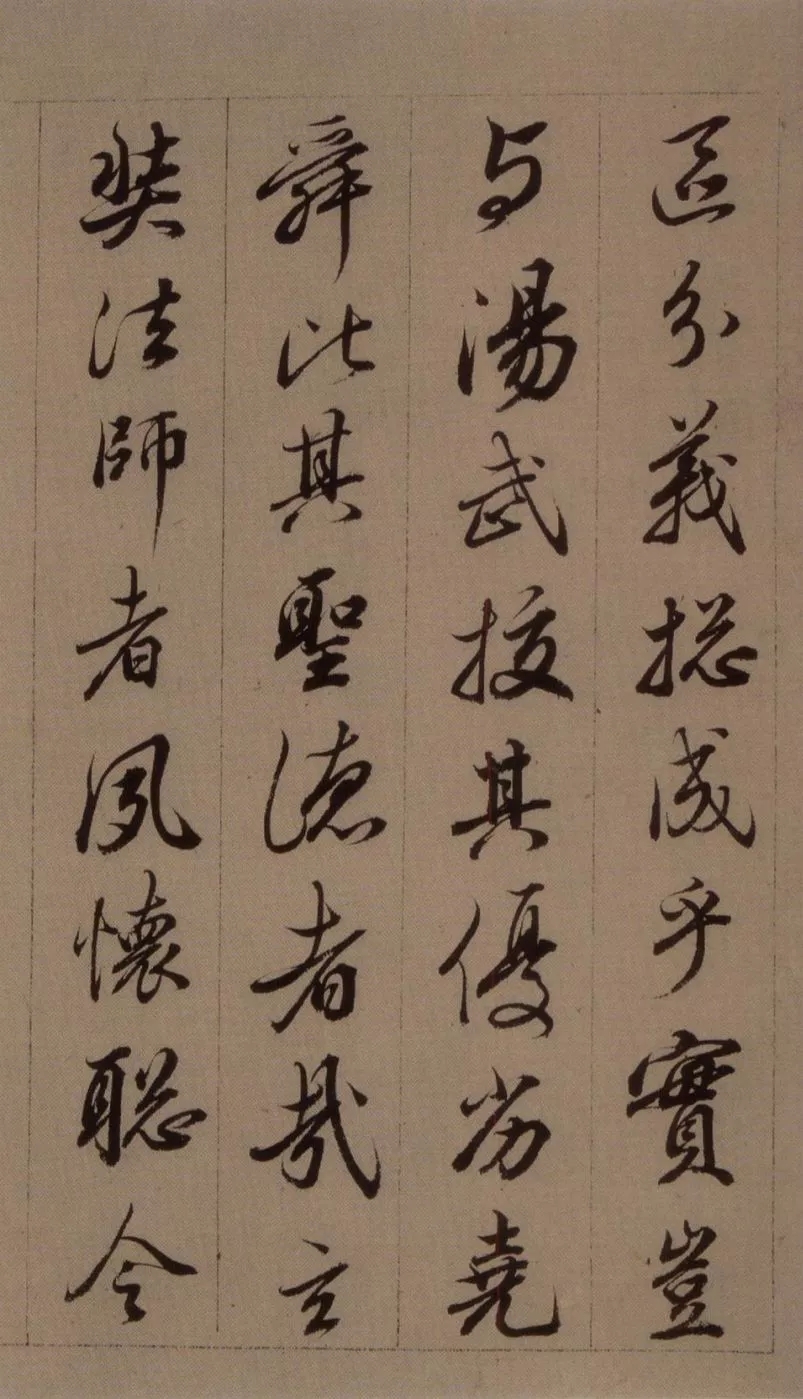 區分義揔成乎實豈
与湯武挍其優劣堯
舜比其聖德者哉玄
奘法師者夙懷聡令